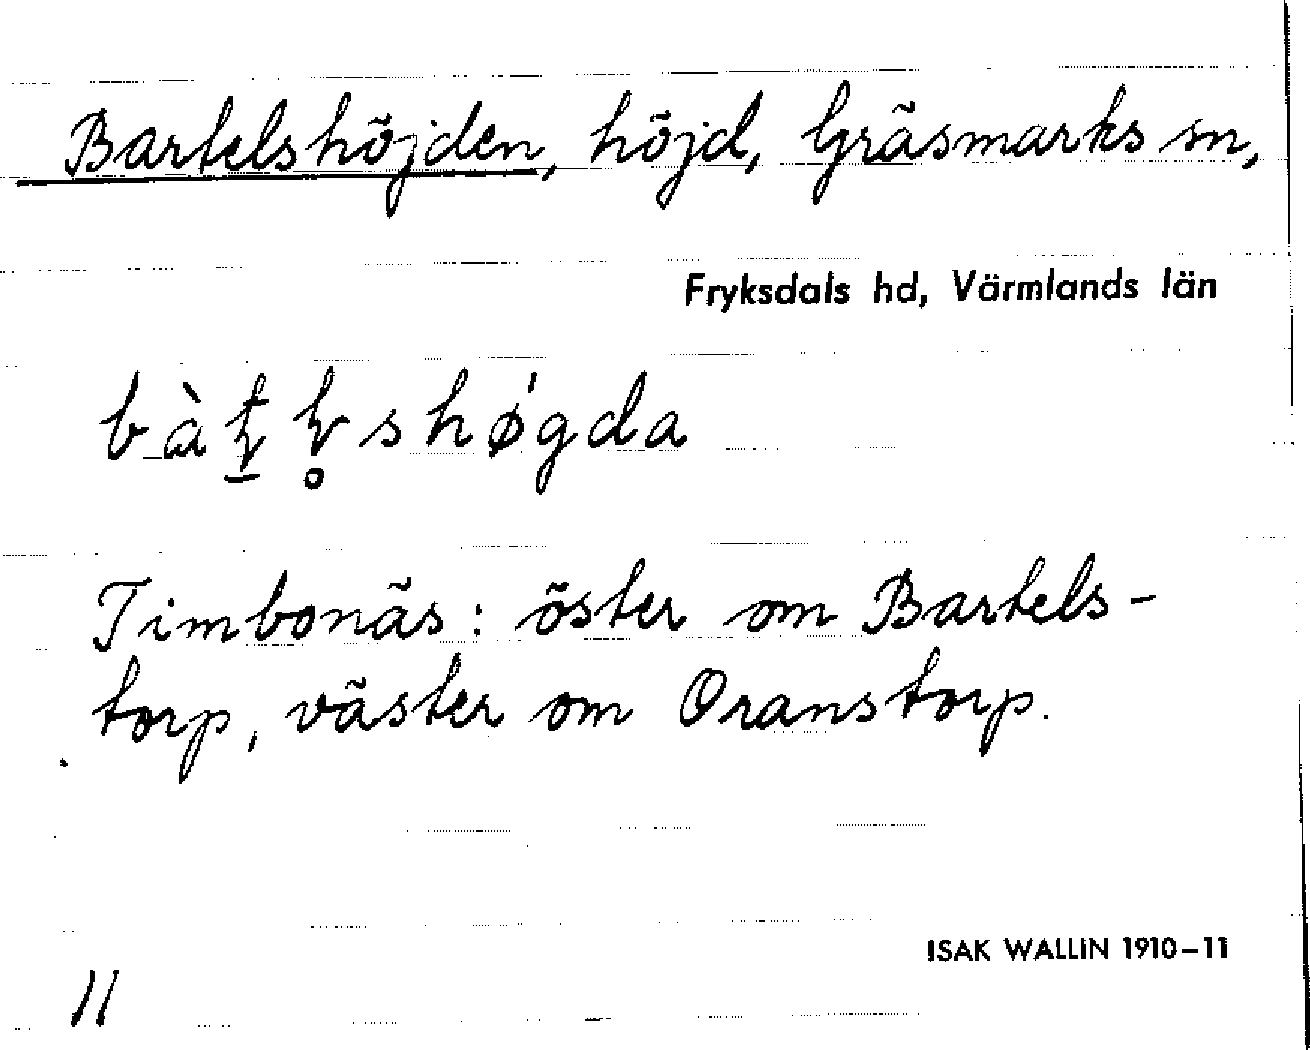 Bartelshöjden, höjd, Gräsmarks sn,
Fryksdals hd, Värmlands län
shǿgda
Timbonäs: öster om Bartels-
torp, väster om Oranstorp.
ISAK WALLIN 1910-11
11